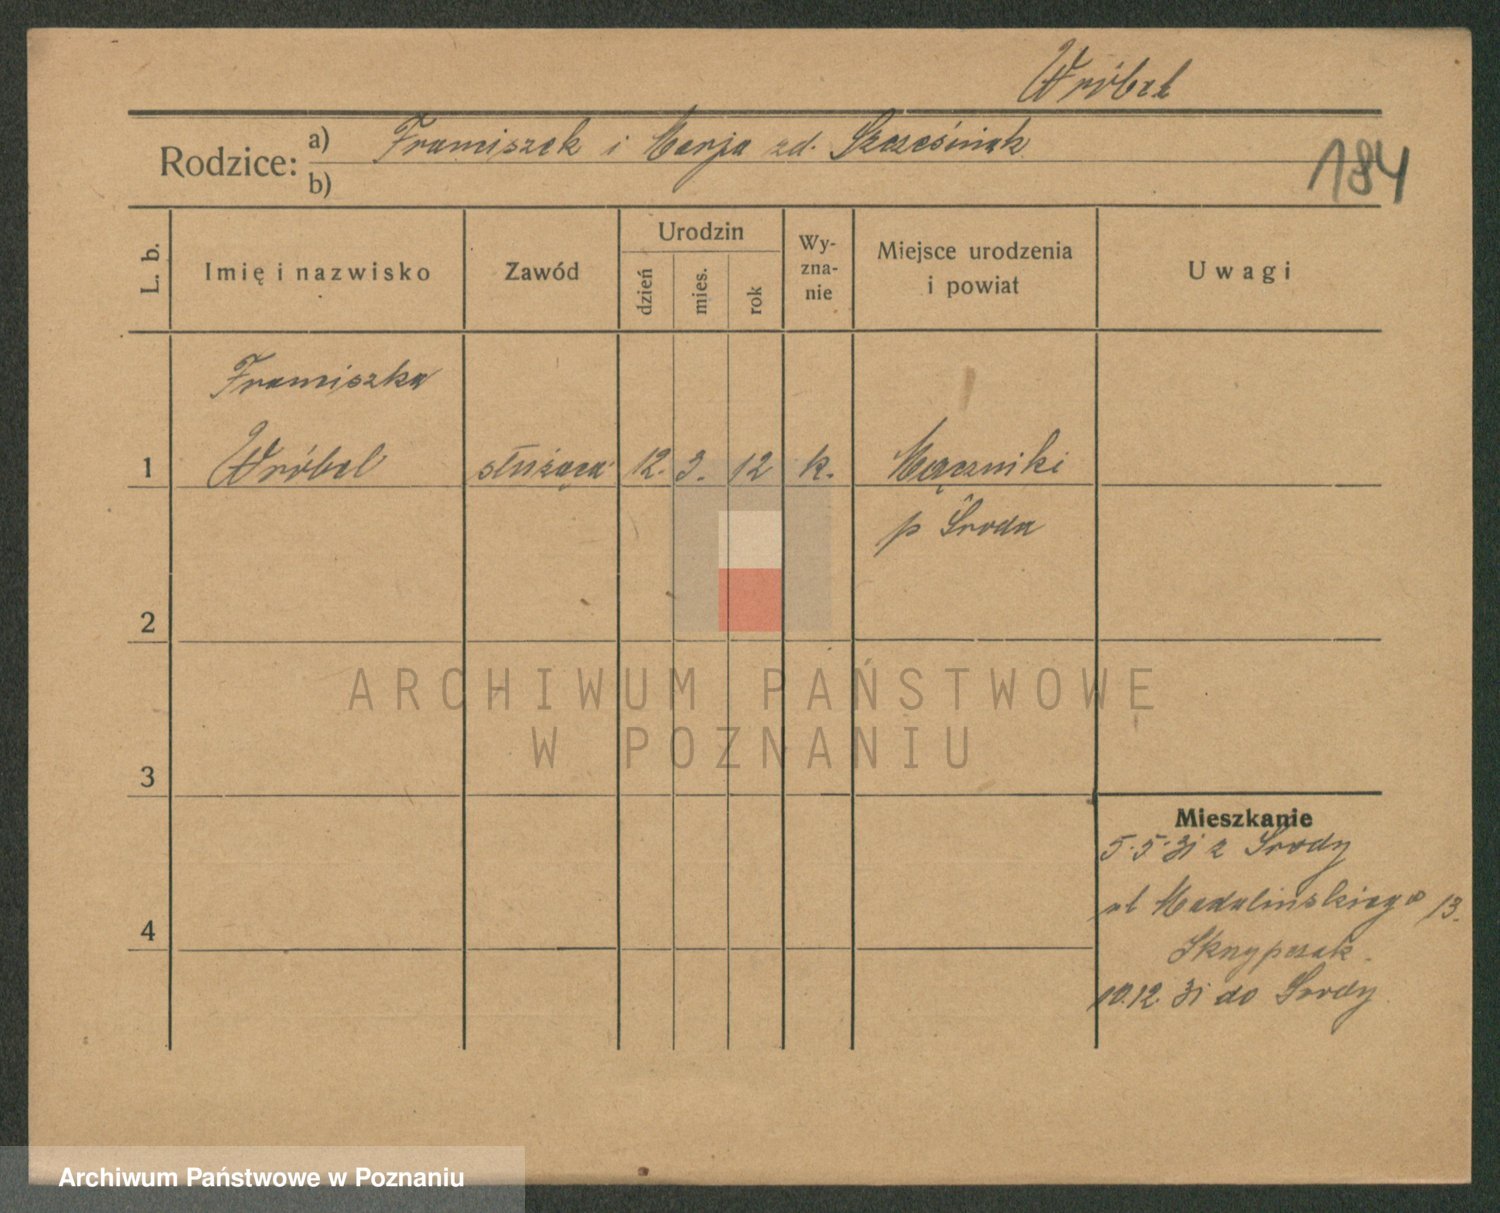 Wróbel
Rodzice: a) Franciszek i Marja zd. Szcześniak
b)
184
L. b.
Imię i nazwisko
Zawód
Urodzin
dzień
mies.
rok
Wy-
zna-
nie
Miejsce urodzenia
i powiat
Uwagi
Franciszka
1 Wróbel służąca 12. 3. 12 k. Mączniki
p Środa
2
ARCHIWUM PAŃSTWOWE
W POZNANIU
3
Mieszkanie
5.5.31 z Środy
ul Madalińskiego 13.
4
Skrzypczak.
10.12.31 do Środy
Archiwum Państwowe w Poznaniu